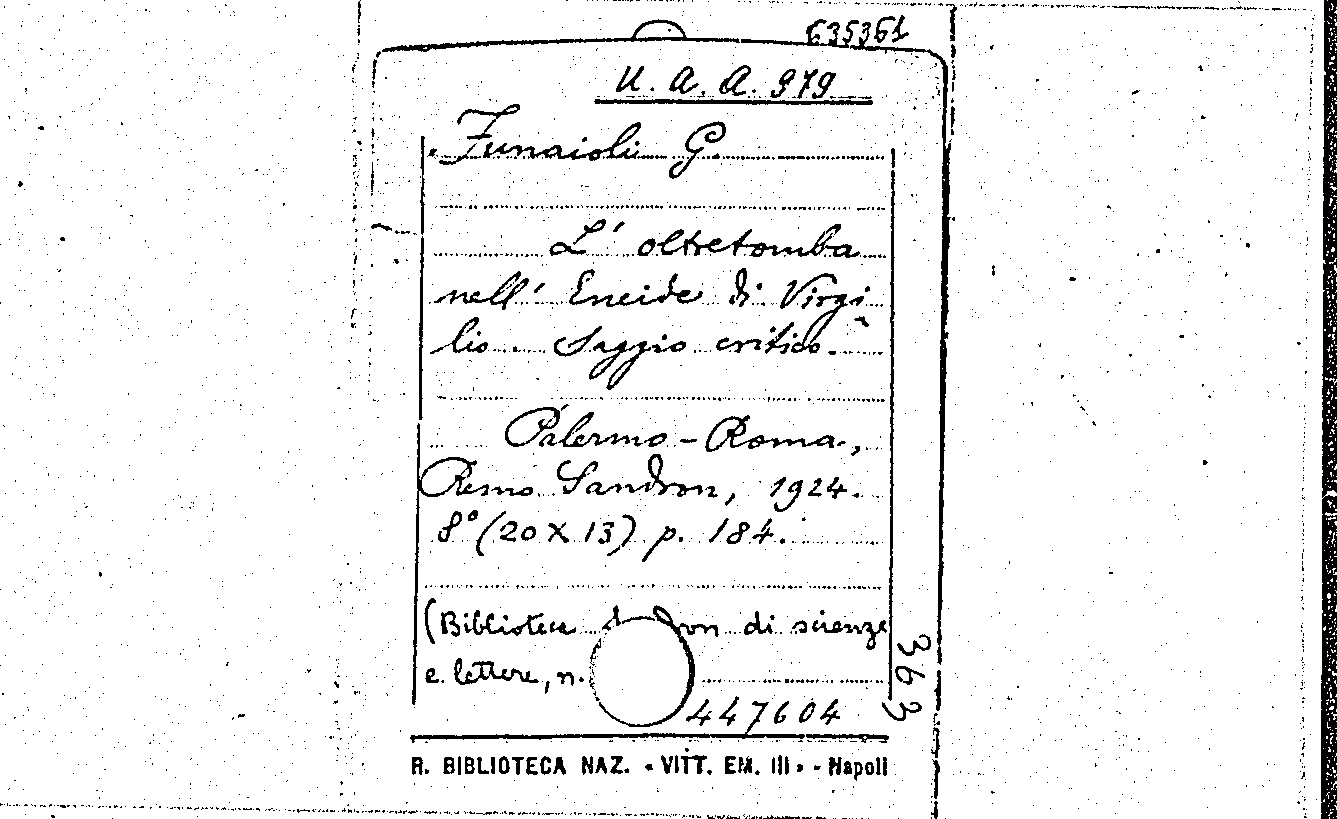 635361
U. A. A. 979
Funaioli G.
L' oltretomba
nell' Eneide di Virgi
lio. Saggio critico.
Palermo - Roma,
Remo Sandron, 1924.
8° (20 X 13) p. 184.
(Biblioteca di scienze
e lettere, n.
363
447604
R. BIBLIOTECA NAZ. « VITT. EM. III » - Napoli